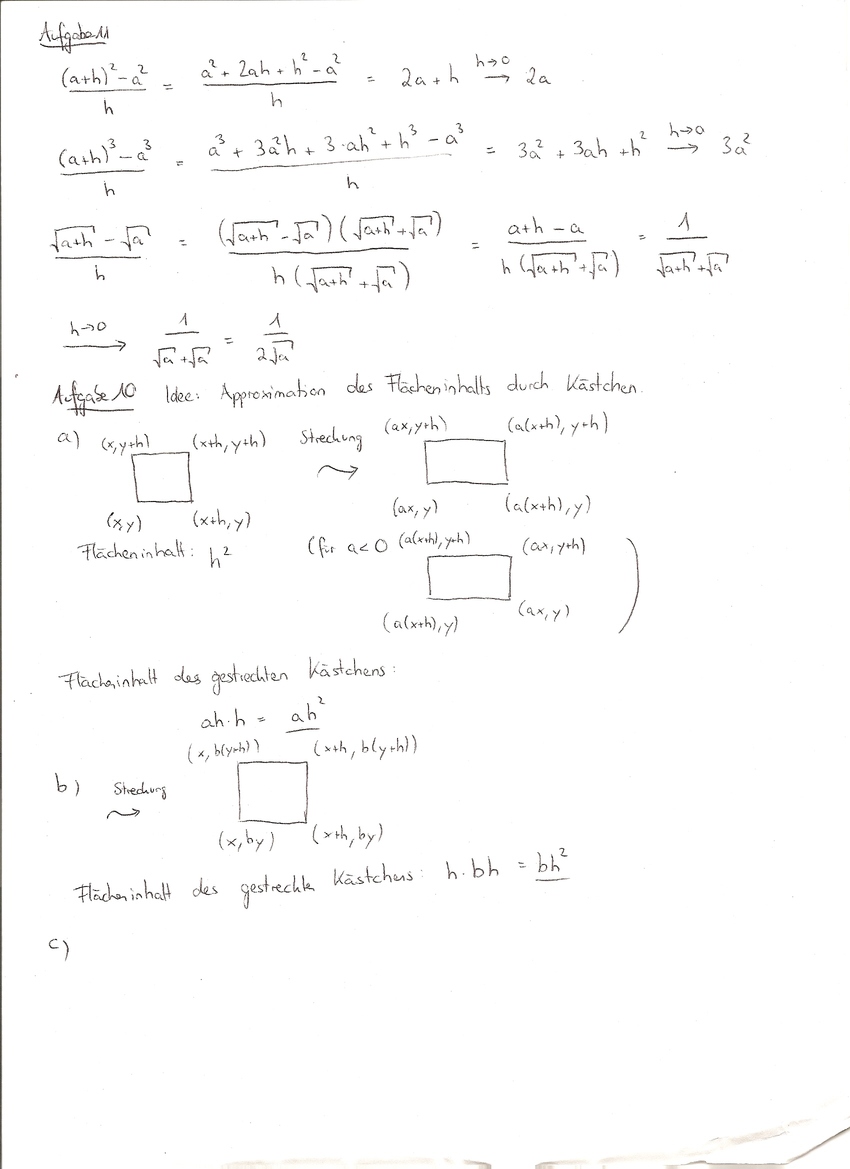 Aufgabe 11
((a+h)² - a²)/h = (a² + 2ah + h² - a²)/h = 2a + h →(h→0) 2a
((a+h)³ - a³)/h = (a³ + 3a²h + 3·ah² + h³ - a³)/h = 3a² + 3ah + h² →(h→0) 3a²
(√(a+h) - √a)/h = ((√(a+h) - √a)(√(a+h) + √a))/(h(√(a+h) + √a)) = (a+h - a)/(h(√(a+h) + √a)) = 1/(√(a+h) + √a)
→(h→0) 1/(√a + √a) = 1/(2√a)
Aufgabe 10 Idee: Approximation des Flächeninhalts durch Kästchen.
a) (x,y+h) (x+h, y+h) Streckung (ax,y+h) (a(x+h), y+h)
⇝
(x,y) (x+h, y) (ax, y) (a(x+h), y)
Flächeninhalt: h² (für a<0 (a(x+h), y+h) (ax, y+h)
(a(x+h), y) (ax, y) )
Flächeninhalt des gestreckten Kästchens:
ah·h = ah²
(x, b(y+h)) (x+h, b(y+h))
b) Streckung
⇝
(x, by) (x+h, by)
Flächeninhalt des gestreckte Kästchens: h·bh = bh²
c)